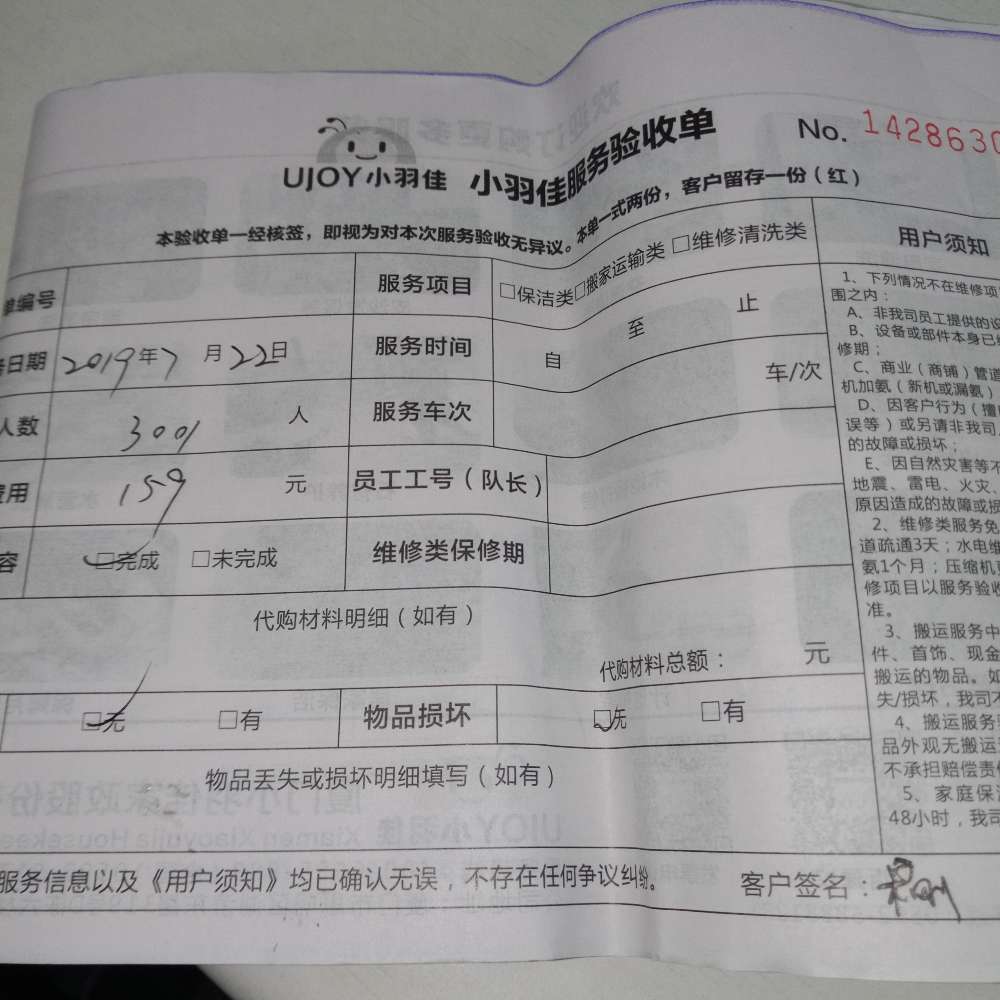 UJOY小羽佳 小羽佳服务验收单 No. 1428630
本验收单一经核签，即视为对本次服务验收无异议。本单一式两份，客户留存一份（红）
单编号 服务项目 □保洁类□搬家运输类 □维修清洗类
日期 2019年7月22日 服务时间 自 至 止
人数 3001 人 服务车次 车/次
费用 159 元 员工工号（队长）
容 □完成 □未完成 维修类保修期
代购材料明细（如有）
代购材料总额： 元
□无 □有 物品损坏 □无 □有
物品丢失或损坏明细填写（如有）
服务信息以及《用户须知》均已确认无误，不存在任何争议纠纷。 客户签名：
用户须知
1、下列情况不在维修项
围之内：
A、非我司员工提供的设
B、设备或部件本身已
修期；
C、商业（商铺）管道
机加氨（新机或漏氨）
D、因客户行为（擅
误等）或另请非我司
的故障或损坏；
E、因自然灾害等不
地震、雷电、火灾、
原因造成的故障或损
2、维修类服务免
道疏通3天；水电维
氨1个月；压缩机
修项目以服务验收
准。
3、搬运服务中
件、首饰、现金
搬运的物品。如
失/损坏，我司不
4、搬运服务
品外观无搬运
不承担赔偿责任
5、家庭保洁
48小时，我司